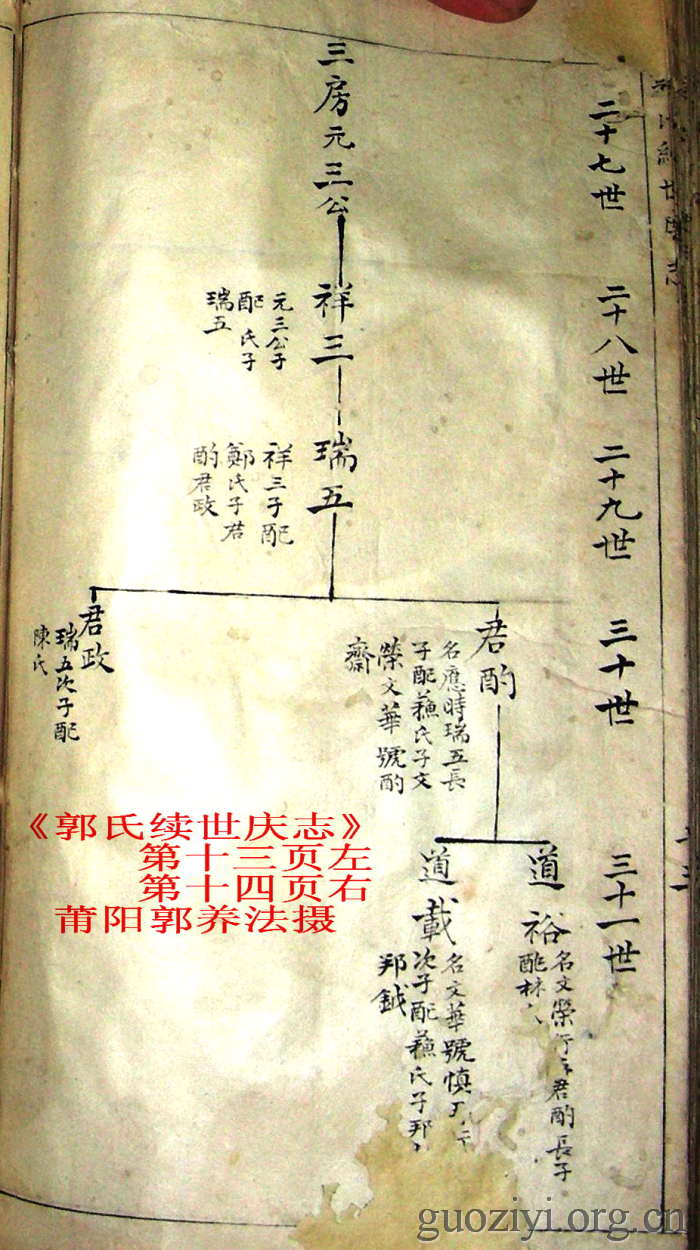 二十七世
二十八世
二十九世
三十世
三十一世
三房元三公
祥三
元三公子
配 氏子
瑞五
瑞五
祥三子配
鄭氏子君
酌君政
君酌
名應時瑞五長
子配蘇氏子文
榮文華號酌
齋
君政
瑞五次子配
陳氏
道裕
名文榮行 君酌長子
配林
道載
名文華號慎
次子配蘇氏子邦
邦鉞
《郭氏续世庆志》
第十三页左
第十四页右
莆阳郭养法摄
guoziyi.org.cn